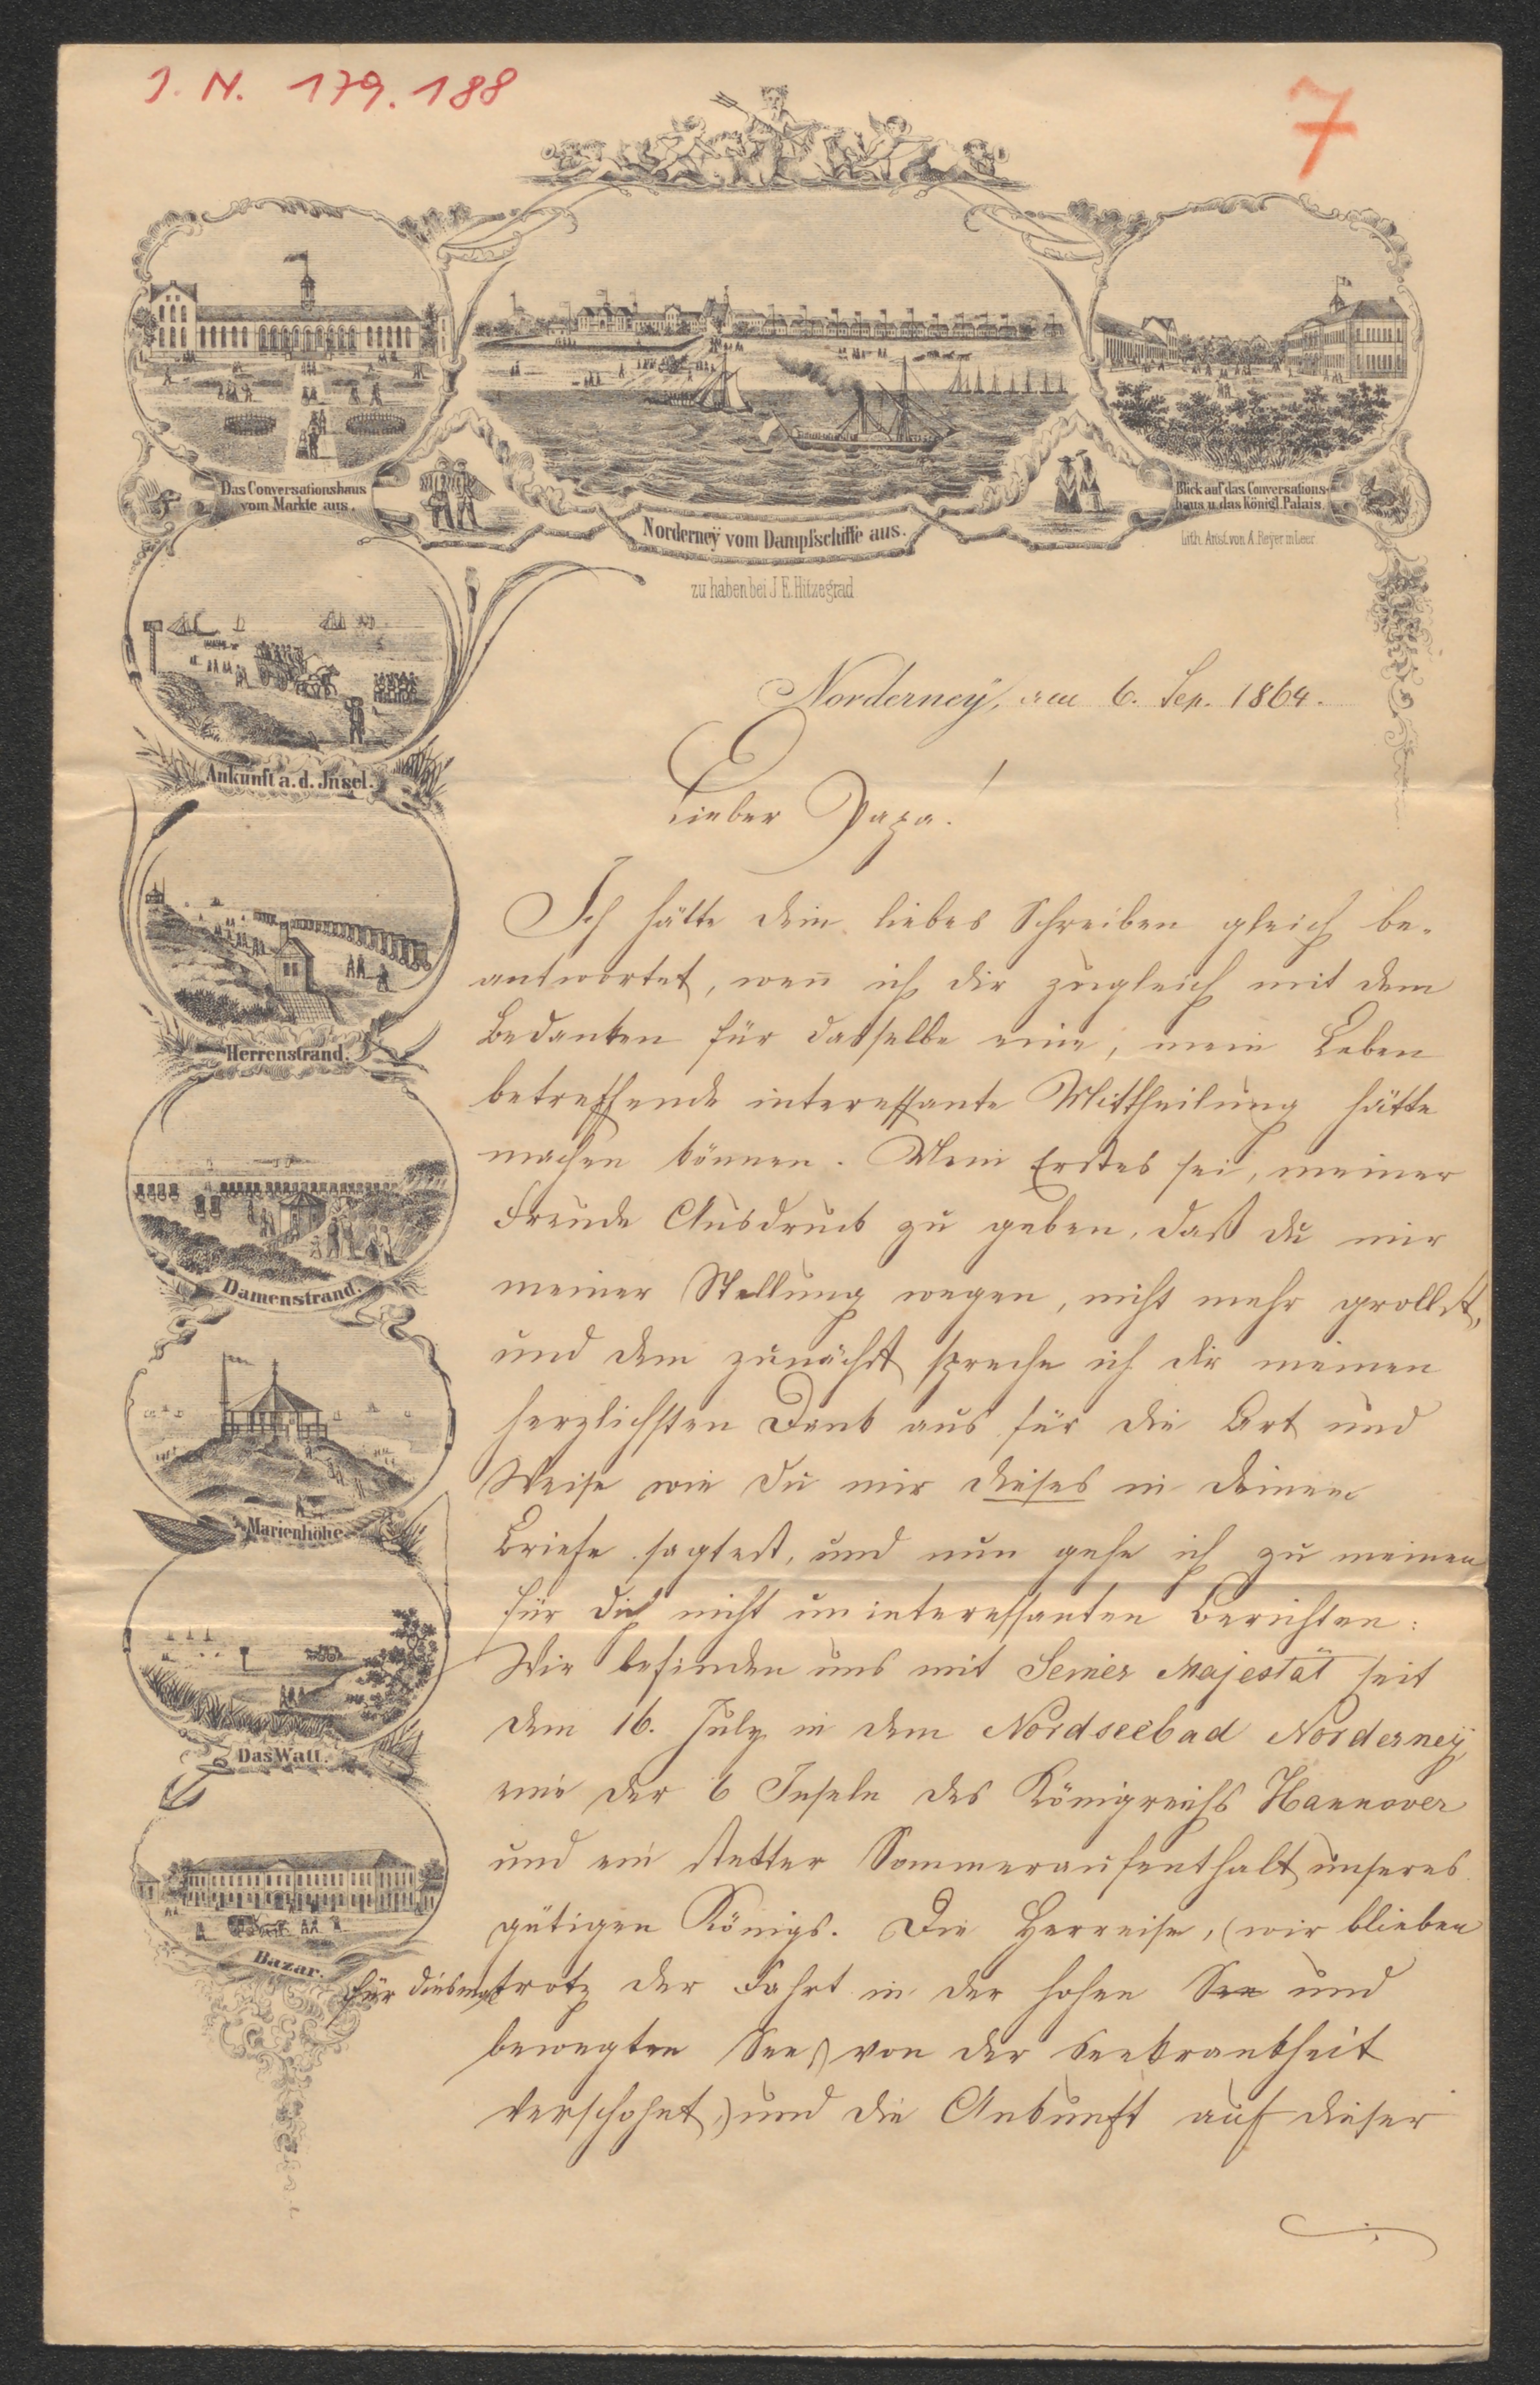 J. N. 179.188
7
Das Conversationshaus
vom Markte aus.
Norderneÿ vom Dampfschiffe aus.
Blick auf das Conversations-
haus u. das Königl. Palais.
Lith. Anst. von A. Reyer in Leer.
zu haben bei J. E. Hitzegrad
Ankunft a. d. Insel.
Herrenstrand.
Damenstrand.
Marienhöhe.
Das Watt.
Bazar.
Norderneÿ, am 6. Sep. 1864.
Lieber Papa!
Ich hätte dein liebes Schreiben gleich be-
antwortet, wen̄ ich dir zugleich mit dem
Bedanken für dasselbe eine, mein Leben
betreffende interessante Mittheilung hätte
machen können. Mein Erstes sei, meiner
Freude Ausdruck zu geben, daß du mir
meiner Stellung wegen, nicht mehr grollst,
und dem zunächst spreche ich dir meinen
herzlichsten Dank aus für die Art und
Weise wie Du mir dieses in deinem
Briefe sagtest, und nun gehe ich zu meinen
für dich nicht uninteressanten Berichten:
Wir befinden uns mit Seiner Majestät seit
dem 16. July in dem Nordseebad Norderneÿ,
eine der 6 Inseln des Königreichs Hannover
und ein stetter Sommeraufenthalt unseres
gütigen Königs. Die Herreise, (wir blieben
für diesmal trotz der Fahrt in der hohen See und
bewegten See, von der Seekrankheit
verschohnt,) und die Ankunft auf dieser